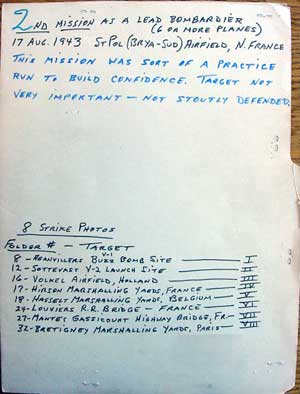 2ND MISSION AS A LEAD BOMBARDIER
(6 OR MORE PLANES)
17 AUG. 1943 ST POL (BRYA-SUD) AIRFIELD, N. FRANCE
THIS MISSION WAS SORT OF A PRACTICE
RUN TO BUILD CONFIDENCE. TARGET NOT
VERY IMPORTANT — NOT STOUTLY DEFENDED.
8 STRIKE PHOTOS
FOLDER # — TARGET
V-1
8 - BUZZ BOMB SITE — I
12 - SOTTEVAST V-2 LAUNCH SITE — II
16 - VOLKEL AIRFIELD, HOLLAND — III
17 - HIRSON MARSHALLING YARDS, FRANCE — IV
18 - HASSELT MARSHALLING YARDS, BELGIUM — V
24 - LOUVIERS R.R. BRIDGE - FRANCE — VI
27 - MANTES GASSICOURT HIGHWAY BRIDGE, FR — VII
32 - BRETIGNEY MARSHALLING YARDS, PARIS — VIII